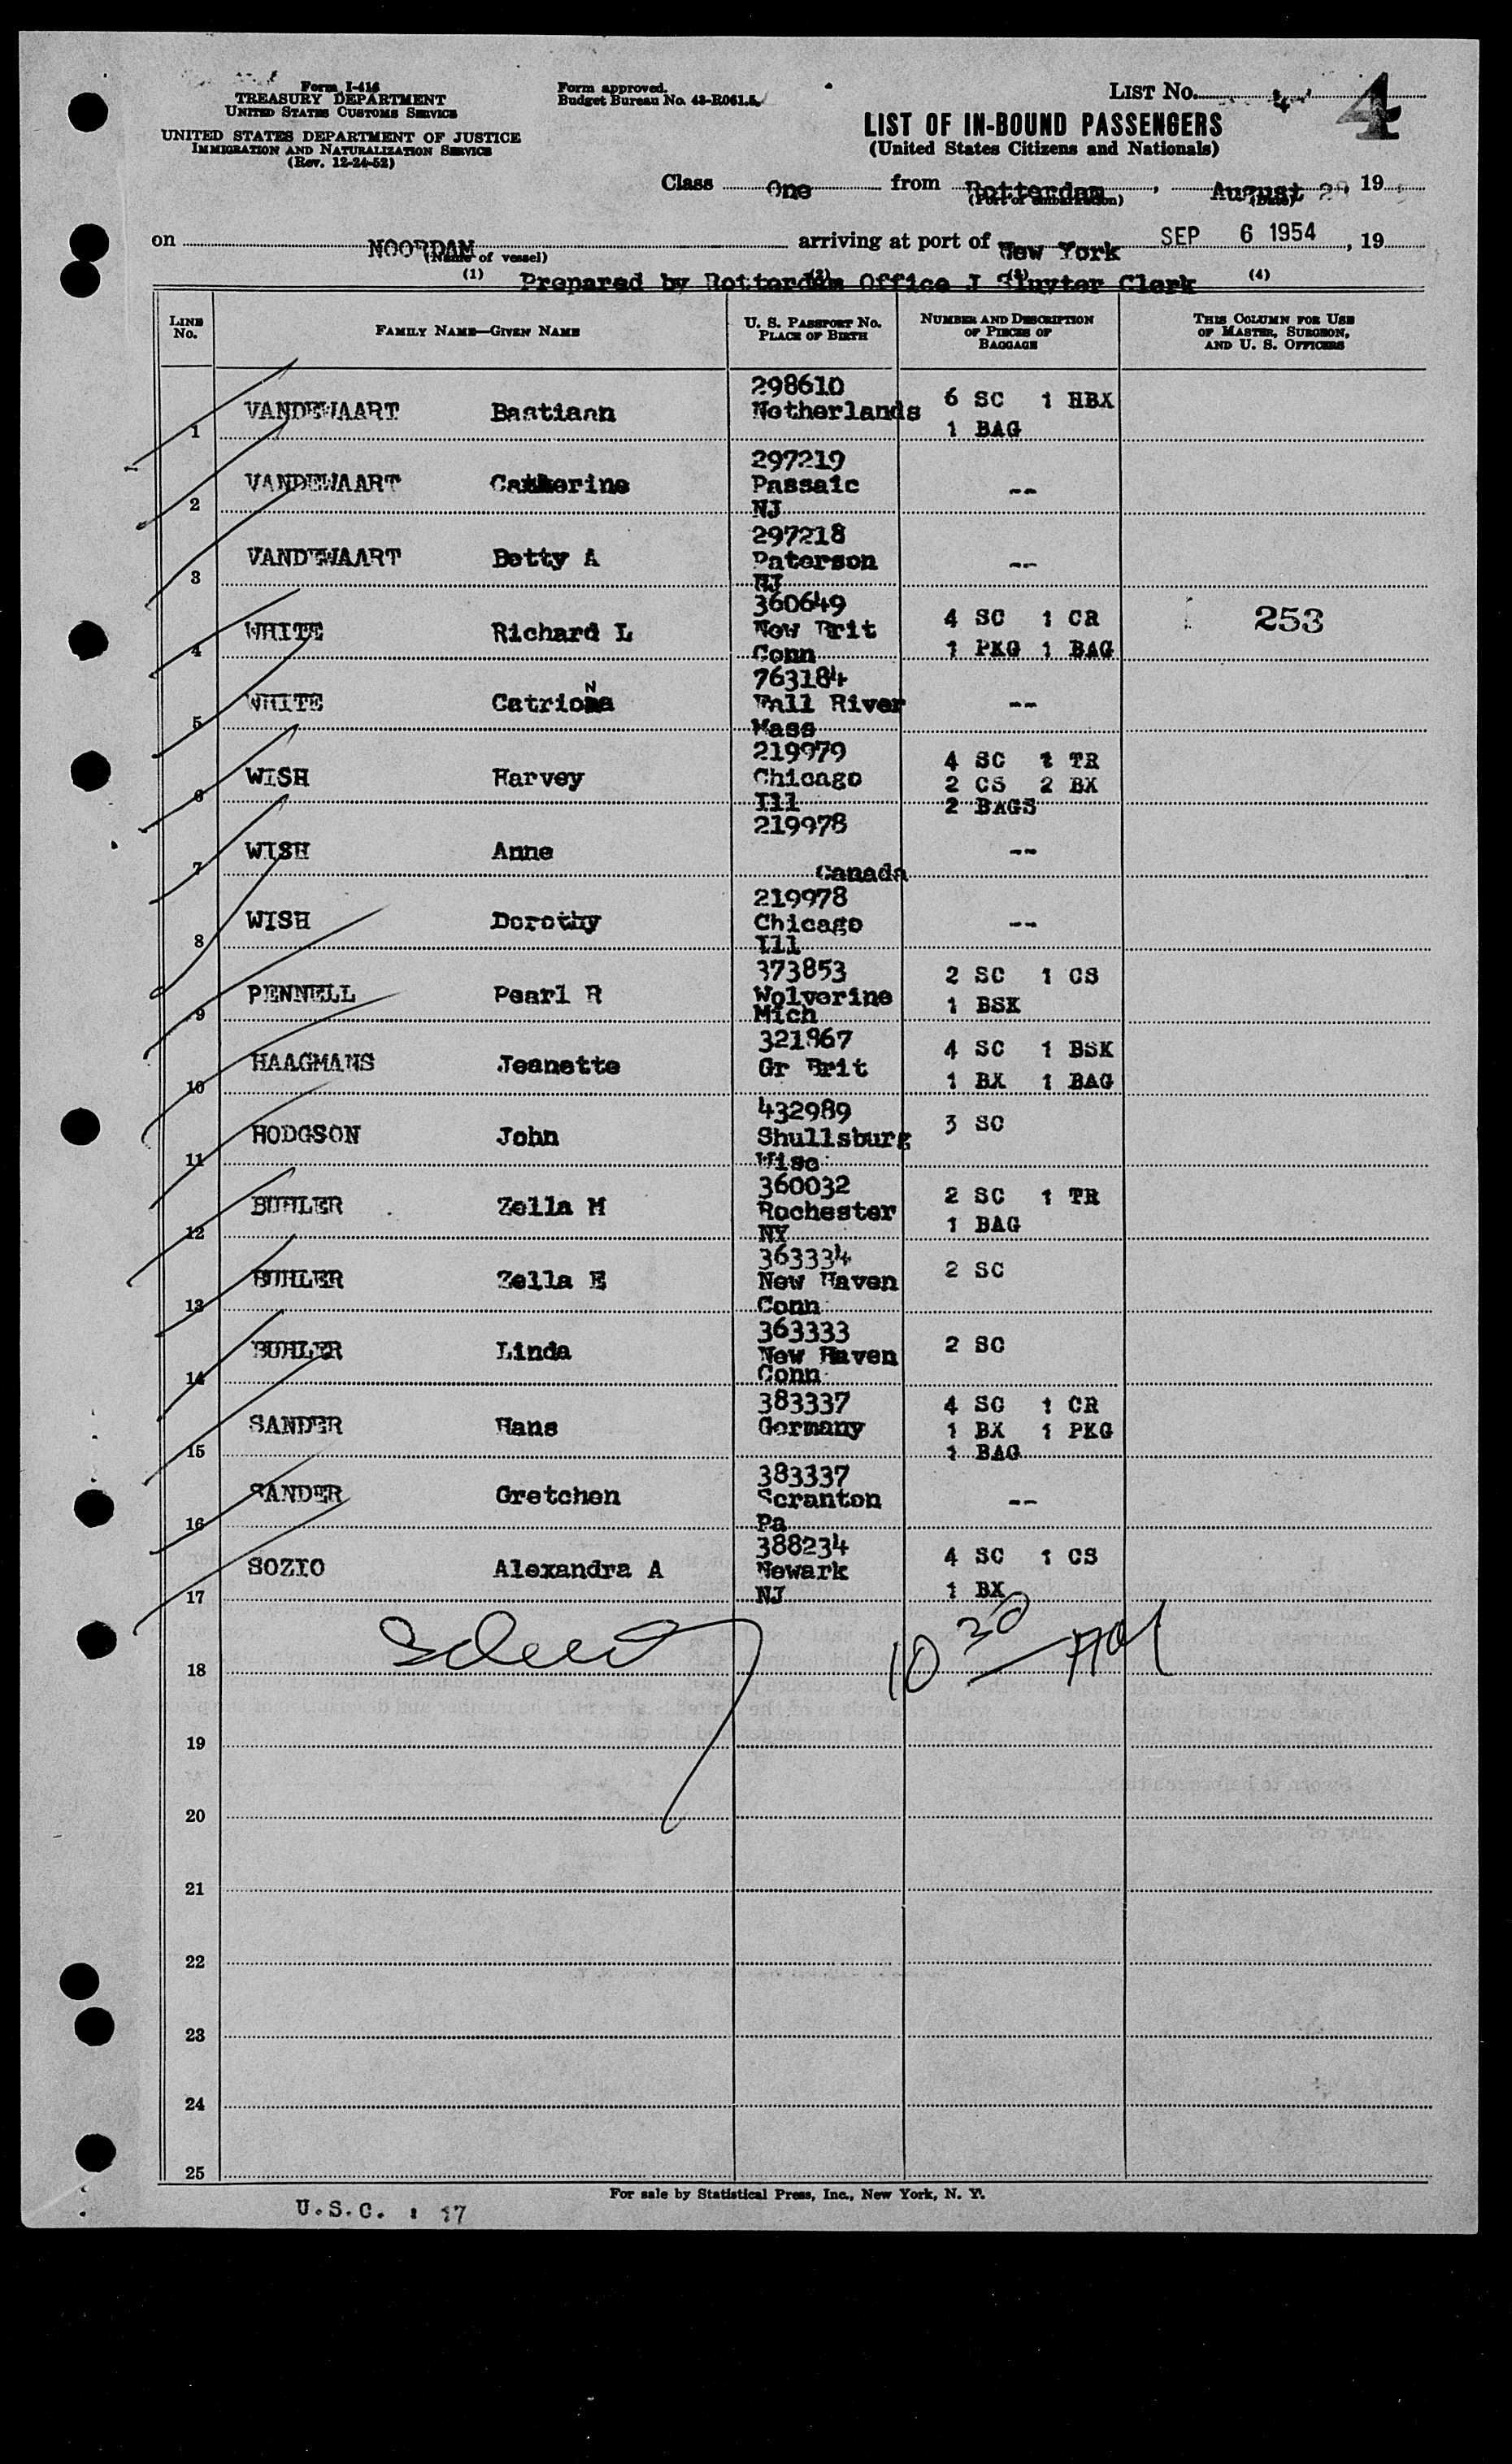 Form I-416
TREASURY DEPARTMENT
UNITED STATES CUSTOMS SERVICE
UNITED STATES DEPARTMENT OF JUSTICE
IMMIGRATION AND NATURALIZATION SERVICE
(Rev. 12-24-52)
Form approved.
Budget Bureau No. 43-R061.5.
LIST NO. 4 4
LIST OF IN-BOUND PASSENGERS
(United States Citizens and Nationals)
Class One from Rotterdam, August 19
(Port of embarkation) (Date)
on NOORDAM arriving at port of New York SEP 6 1954, 19
(Name of vessel)
(1) (2) (3) (4)
Prepared by Rotterdam Office J Sluyter Clerk
LINE No. FAMILY NAME—GIVEN NAME U. S. PASSPORT NO. PLACE OF BIRTH NUMBER AND DESCRIPTION OF PIECES OF BAGGAGE THIS COLUMN FOR USE OF MASTER, SURGEON, AND U. S. OFFICERS
298610
1 VANDEWAART Bastiaan Netherlands 6 SC 1 HBX
1 BAG
297219
2 VANDEWAART Catherine Passaic --
NJ
297218
3 VANDEWAART Betty A Paterson --
NJ
360649
4 WHITE Richard L New Brit 4 SC 1 CR 253
Conn 1 PKG 1 BAG
763184
5 WHITE Catriona N Fall River --
Mass
219979
6 WISH Harvey Chicago 4 SC 1 TR
2 CS 2 BX
Ill 2 BAGS
219978
7 WISH Anne --
Canada
219978
8 WISH Dorothy Chicago --
Ill
373853
9 PENNELL Pearl R Wolverine 2 SC 1 CS
Mich 1 BSK
321867
10 HAAGMANS Jeanette Gr Brit 4 SC 1 BSK
1 BX 1 BAG
432989
11 HODGSON John Shullsburg 3 SC
Wisc
360032
12 BUHLER Zella M Rochester 2 SC 1 TR
NY 1 BAG
363334
13 BUHLER Zella E New Haven 2 SC
Conn
363333
14 BUHLER Linda New Haven 2 SC
Conn
383337
15 SANDER Hans Germany 4 SC 1 CR
1 BX 1 PKG
1 BAG
383337
16 SANDER Gretchen Scranton --
Pa
388234
17 SOZIO Alexandra A Newark 4 SC 1 CS
NJ 1 BX
18 10 30 AM
19
20
21
22
23
24
25
For sale by Statistical Press, Inc., New York, N. Y.
U.S.C. : 17